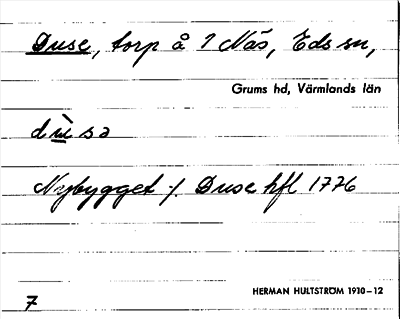 Duse, torp å 1 Näs, Eds sn,
Grums hd, Värmlands län
dùsa
Nybygget /. Duse hfl 1776
HERMAN HULTSTRÖM 1910-12
7